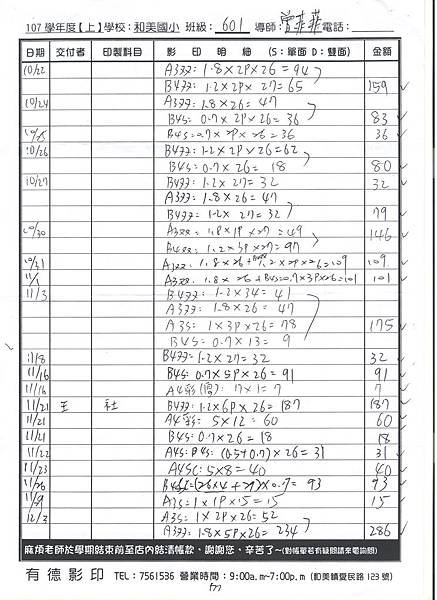 107 學年度【上】學校：和美國小 班級：601 導師：曾菲菲 電話：
日期 交付者 印製科目 影 印 明 細 (S：單面 D：雙面) 金額
10/22 A3双: 1.8×2P×26=94
B4双: 1.2×2P×27=65 159
10/24 A3双: 1.8×26=47
B4S: 0.7×2P×26=36 83
B4S: 0.7×2P×26=36 36
10/26 B4双: 1.2×2P×26=62
B4S: 0.7×26=18 80
10/27 B4双: 1.2×27=32 32
A3双: 1.8×26=47
B4双: 1.2×27=32 79
10/30 A3双: 1.8×1P×27=49 146
B4双: 1.2×3P×27=97
10/31 A3双: 1.8×26+ 1.2×2P×26=109 109
11/1 A3双: 1.8×26+B4S:0.7×3P×26=101 101
11/3 B4双: 1.2×34=41
A3双: 1.8×26=47
A3S: 1×3P×26=78 175
B4S: 0.7×13=9
11/8 B4双: 1.2×27=32 32
11/16 B4S: 0.7×5P×26=91 91
11/16 A4彩 7×1=7 7
11/21 王 社 B4双: 1.2×6P×26=187 187
11/21 A4彩: 5×12=60 60
11/21 B4S: 0.7×26=18 18
11/22 A4S: B4S: (0.5+0.7)×26=31 31
11/23 A4SC: 5×8=40 40
11/26 (26×4+29)×0.7=93 93
A3S: 1×1P×15=15 15
12/3 A3S: 1×2P×26=52
A3双: 1.8×5P×26=234 286
麻煩老師於學期結束前至店內結清帳款，謝謝您，辛苦了~(對帳單若有疑問請來電詢問)
有德影印 TEL：7561536 營業時間：9:00a.m~7:00p.m (和美鎮愛民路 123 號)